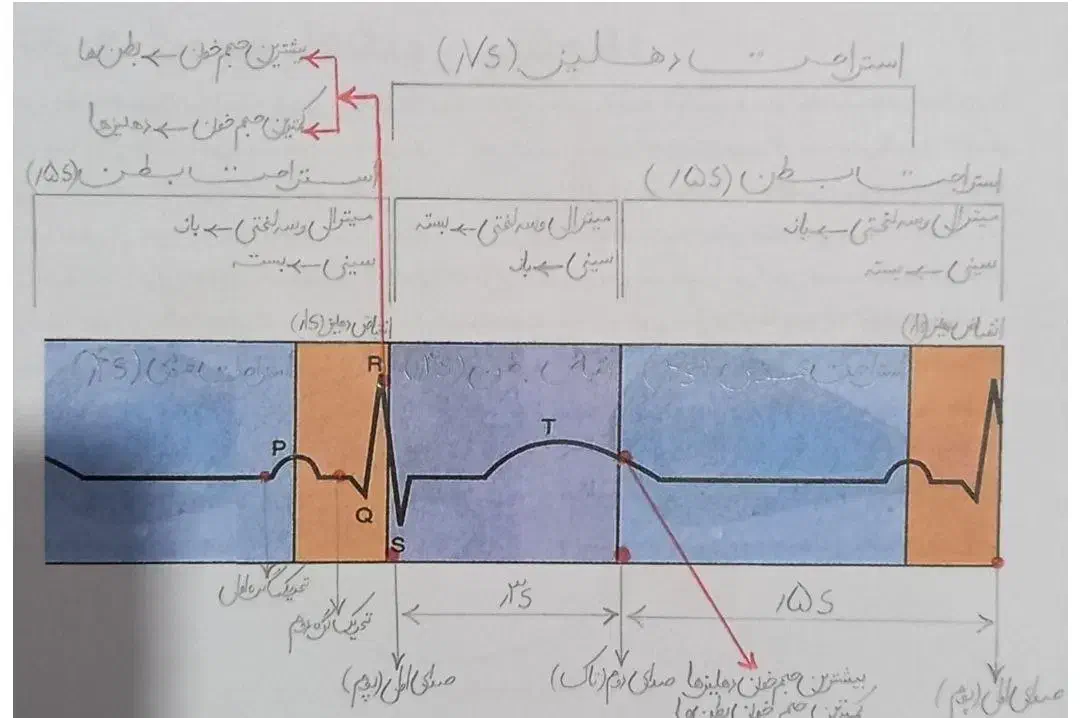 استراحت دهلیز (۷s/)
بیشترین حجم خون ← بطن ها
کمترین حجم خون ← دهلیزها
استراحت بطن (۵s/)
استراحت بطن (۵s/)
میترال و سه لختی ← باز
سینی ← بسته
میترال و سه لختی ← بسته
سینی ← باز
میترال و سه لختی ← باز
سینی ← بسته
انقباض دهلیز (۱s/)
انقباض دهلیز (۱s/)
استراحت عمومی (۴s/)
انقباض بطن (۳s/)
استراحت عمومی (۴s/)
R
P
T
Q
S
تحریک گره اول
تحریک گره دوم
۳s/
۵s/
صدای اول (پوم)
صدای دوم (تاک)
بیشترین حجم خون دهلیزها
کمترین حجم خون بطن ها
صدای اول (پوم)